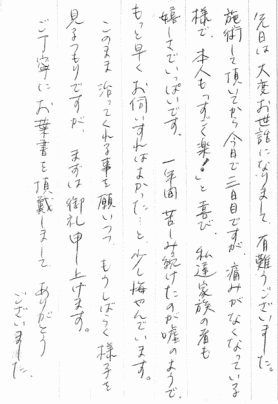 先日は大変お世話になりまして有難うございました。
施術して頂いてから今日で三日目ですが、痛みがなくなっている
様で、本人も「すっごく楽!」と喜び、私達家族の者も
嬉しさでいっぱいです。一年間苦しみ続けたのが嘘のようで、
もっと早くお伺いすればよかった…と少し悔やんでいます。
このまま治ってくれる事を願いつつ、もうしばらく様子を
見るつもりですが、まずは御礼申し上げます。
ご丁寧にお葉書を頂戴しまして、ありがとう
ございました。